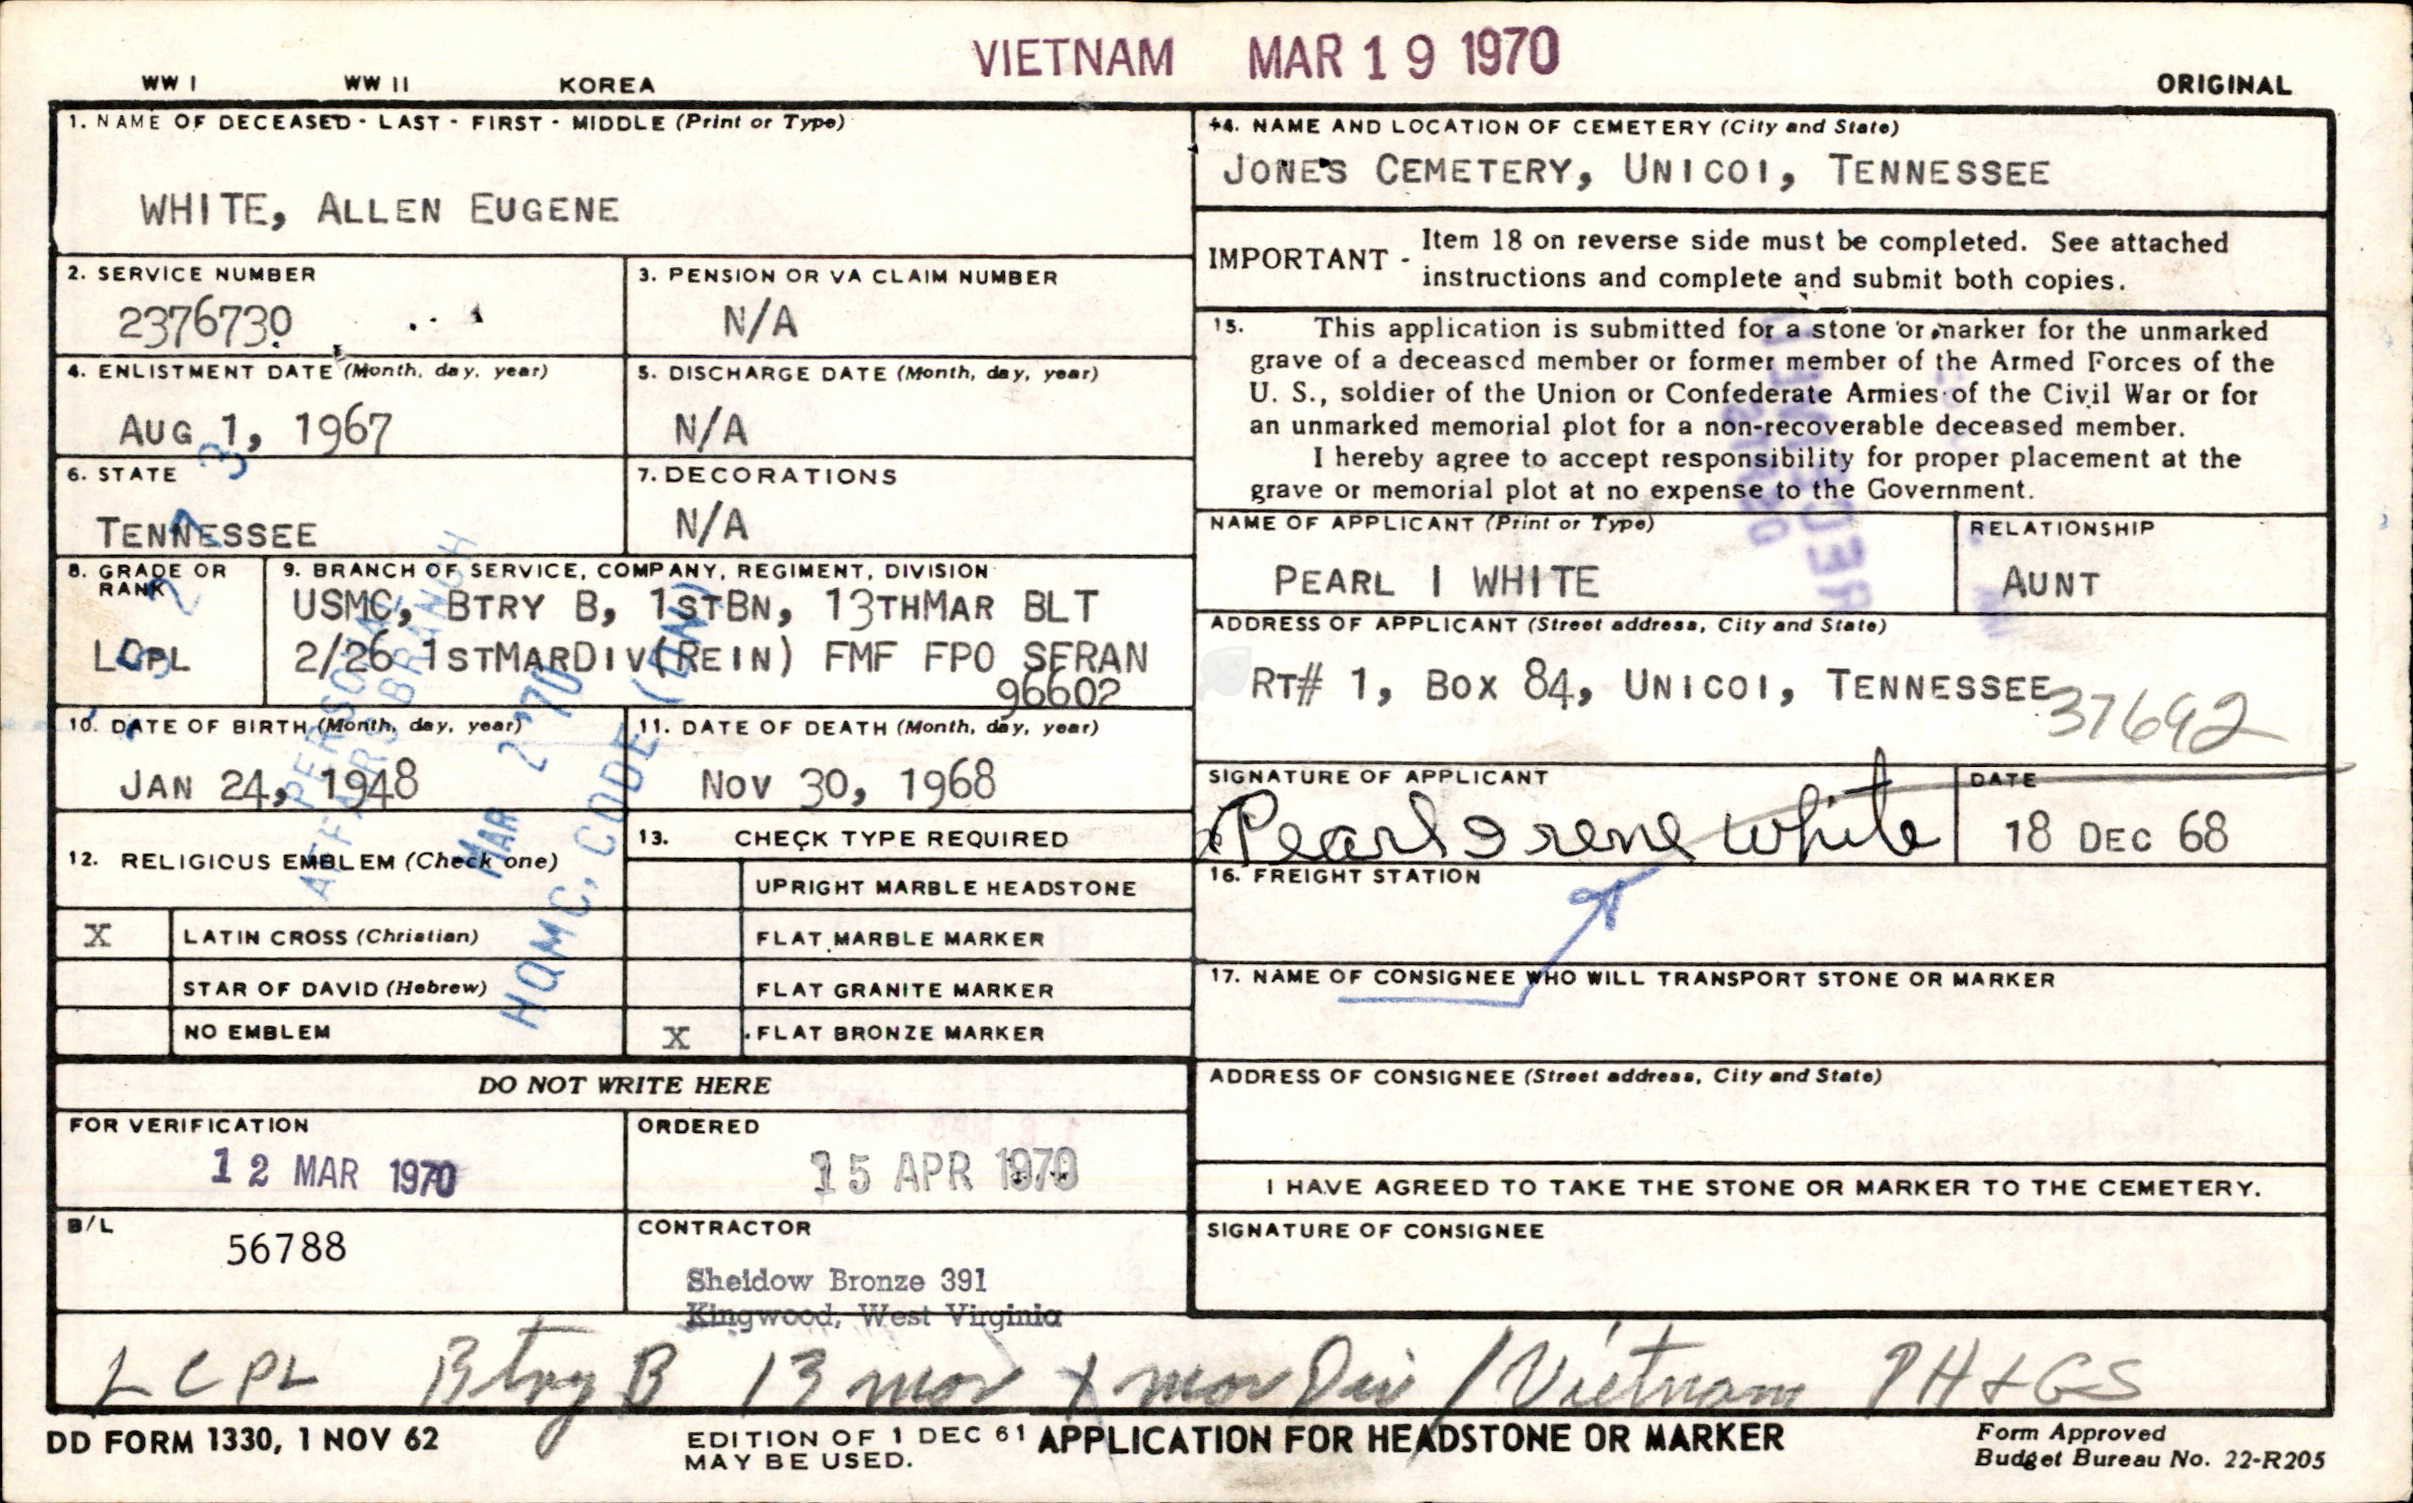 VIETNAM MAR 19 1970
WW I WW II KOREA ORIGINAL
1. NAME OF DECEASED - LAST - FIRST - MIDDLE (Print or Type)
WHITE, ALLEN EUGENE
2. SERVICE NUMBER
2376730
3. PENSION OR VA CLAIM NUMBER
N/A
4. ENLISTMENT DATE (Month, day, year)
AUG 1, 1967
5. DISCHARGE DATE (Month, day, year)
N/A
6. STATE
TENNESSEE
7. DECORATIONS
N/A
8. GRADE OR RANK
LCPL
9. BRANCH OF SERVICE, COMPANY, REGIMENT, DIVISION
USMC, BTRY B, 1STBN, 13THMAR BLT
2/26 1STMARDIV(REIN) FMF FPO SFRAN
96602
10. DATE OF BIRTH (Month, day, year)
JAN 24, 1948
11. DATE OF DEATH (Month, day, year)
NOV 30, 1968
PERSONAL
AFFAIRS BRANCH
MAR 2 '70
HQMC, CODE (DN)
12. RELIGIOUS EMBLEM (Check one)
X LATIN CROSS (Christian)
STAR OF DAVID (Hebrew)
NO EMBLEM
13. CHECK TYPE REQUIRED
UPRIGHT MARBLE HEADSTONE
FLAT MARBLE MARKER
FLAT GRANITE MARKER
X FLAT BRONZE MARKER
DO NOT WRITE HERE
FOR VERIFICATION
12 MAR 1970
ORDERED
15 APR 1970
B/L
56788
CONTRACTOR
Sheidow Bronze 391
Kingwood, West Virginia
14. NAME AND LOCATION OF CEMETERY (City and State)
JONES CEMETERY, UNICOI, TENNESSEE
IMPORTANT - Item 18 on reverse side must be completed. See attached
instructions and complete and submit both copies.
15. This application is submitted for a stone or marker for the unmarked
grave of a deceased member or former member of the Armed Forces of the
U. S., soldier of the Union or Confederate Armies of the Civil War or for
an unmarked memorial plot for a non-recoverable deceased member.
I hereby agree to accept responsibility for proper placement at the
grave or memorial plot at no expense to the Government.
NAME OF APPLICANT (Print or Type)
PEARL I WHITE
RELATIONSHIP
AUNT
ADDRESS OF APPLICANT (Street address, City and State)
RT# 1, BOX 84, UNICOI, TENNESSEE 37692
SIGNATURE OF APPLICANT
x Pearl Irene White
DATE
18 DEC 68
16. FREIGHT STATION
17. NAME OF CONSIGNEE WHO WILL TRANSPORT STONE OR MARKER
ADDRESS OF CONSIGNEE (Street address, City and State)
I HAVE AGREED TO TAKE THE STONE OR MARKER TO THE CEMETERY.
SIGNATURE OF CONSIGNEE
LCPL Btry B 13 mar 1 mar Div / Vietnam PH & GS
DD FORM 1330, 1 NOV 62
EDITION OF 1 DEC 61
MAY BE USED.
APPLICATION FOR HEADSTONE OR MARKER
Form Approved
Budget Bureau No. 22-R205